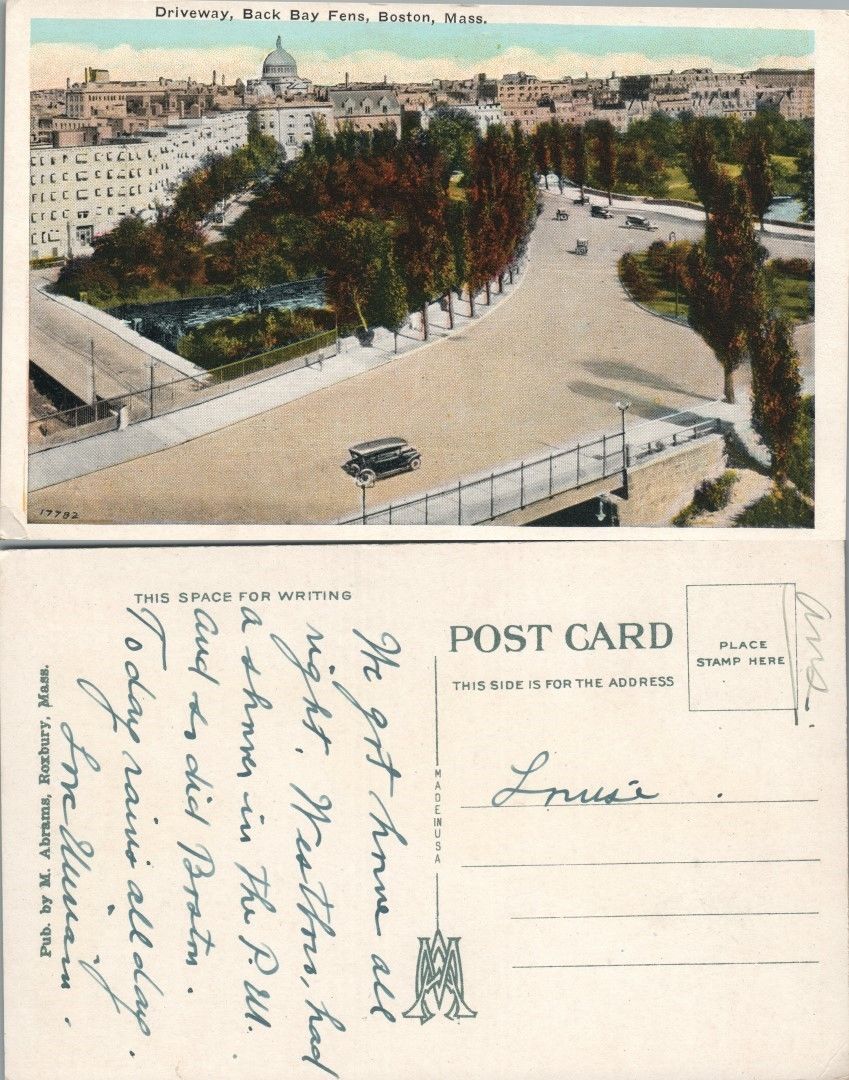 Driveway, Back Bay Fens, Boston, Mass.
17792
THIS SPACE FOR WRITING
We got home all
right. Westboro, had
a shower in the P.M.
and so did Boston.
Today rains all day.
Love
Pub. by M. Abrams, Roxbury, Mass.
POST CARD
THIS SIDE IS FOR THE ADDRESS
PLACE
STAMP HERE
Ans.
MADE IN USA
Louise.